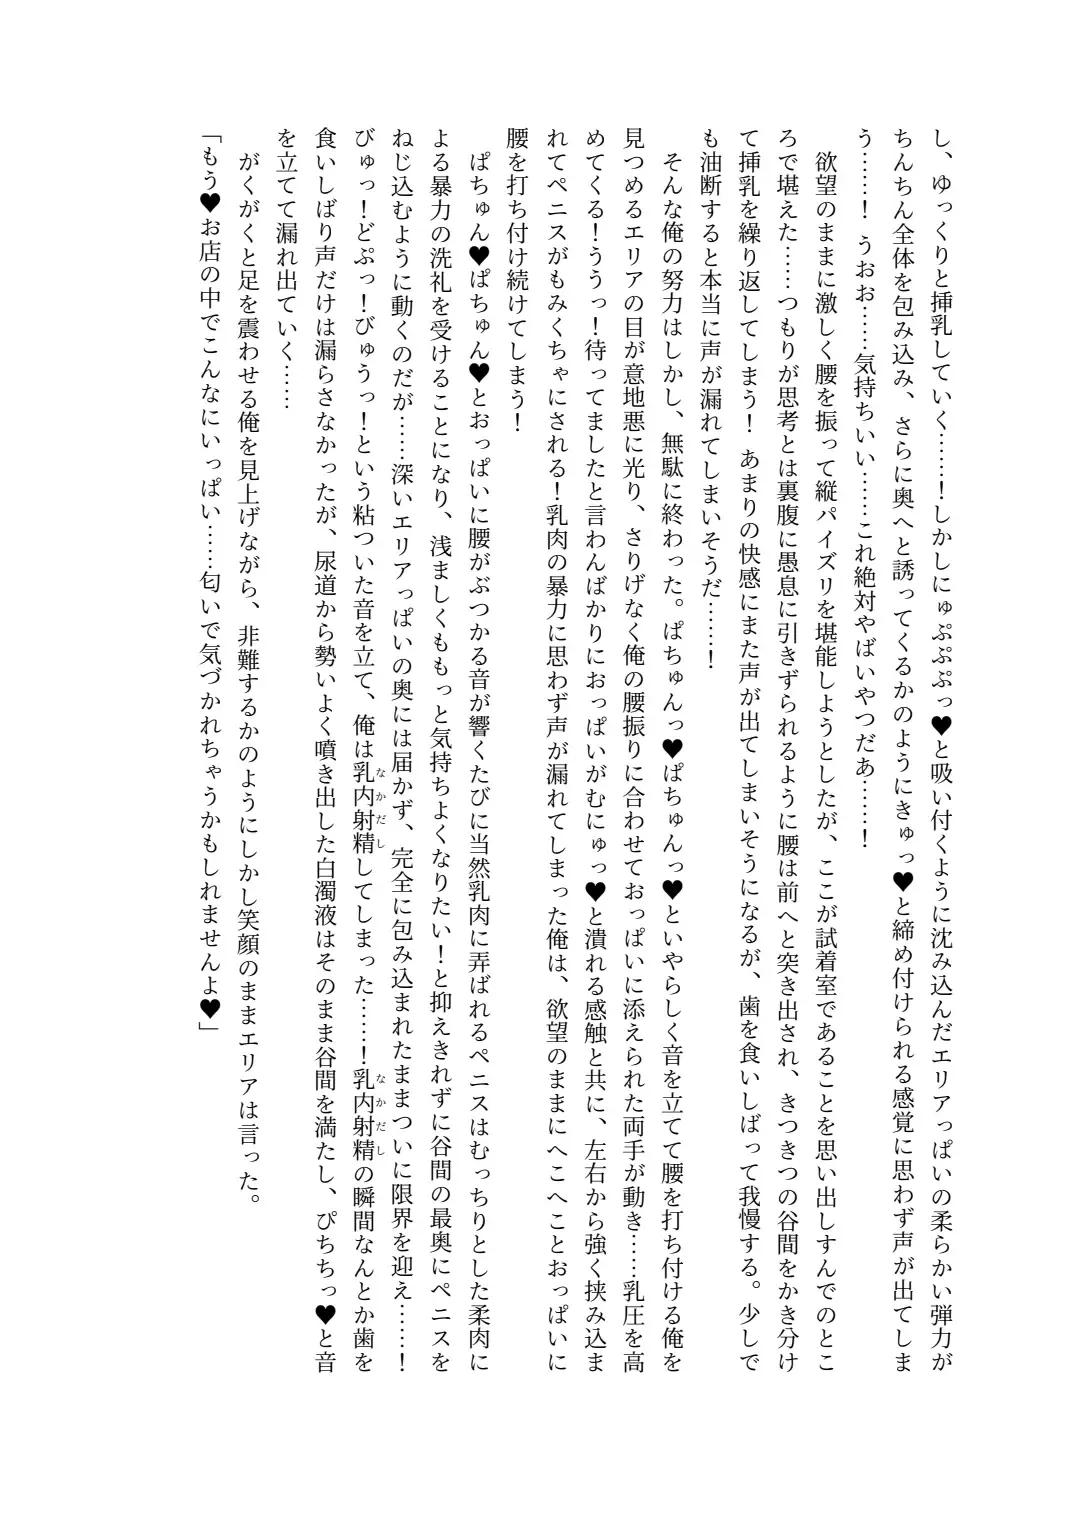 し、ゆっくりと挿乳していく……！しかしにゅぷぷぷっ♥と吸い付くように沈み込んだエリアっぱいの柔らかい弾力が
ちんちん全体を包み込み、さらに奥へと誘ってくるかのようにきゅっ♥と締め付けられる感覚に思わず声が出てしま
う……！　うおお……気持ちいい……これ絶対やばいやつだあ……！
　欲望のままに激しく腰を振って縦パイズリを堪能しようとしたが、ここが試着室であることを思い出しすんでのとこ
ろで堪えた……つもりが思考とは裏腹に愚息に引きずられるように腰は前へと突き出され、きつきつの谷間をかき分け
て挿乳を繰り返してしまう！　あまりの快感にまた声が出てしまいそうになるが、歯を食いしばって我慢する。少しで
も油断すると本当に声が漏れてしまいそうだ……！
　そんな俺の努力はしかし、無駄に終わった。ぱちゅんっ♥ぱちゅんっ♥といやらしく音を立てて腰を打ち付ける俺を
見つめるエリアの目が意地悪に光り、さりげなく俺の腰振りに合わせておっぱいに添えられた両手が動き……乳圧を高
めてくる！ううっ！待ってましたと言わんばかりにおっぱいがむにゅっ♥と潰れる感触と共に、左右から強く挟み込ま
れてペニスがもみくちゃにされる！乳肉の暴力に思わず声が漏れてしまった俺は、欲望のままにへこへことおっぱいに
腰を打ち付け続けてしまう！
　ぱちゅん♥ぱちゅん♥とおっぱいに腰がぶつかる音が響くたびに当然乳肉に弄ばれるペニスはむっちりとした柔肉に
よる暴力の洗礼を受けることになり、浅ましくももっと気持ちよくなりたい！と抑えきれずに谷間の最奥にペニスを
ねじ込むように動くのだが……深いエリアっぱいの奥には届かず、完全に包み込まれたままついに限界を迎え……！
びゅっ！どぷっ！びゅうっ！という粘ついた音を立て、俺は乳内射精なかだししてしまった……！乳内射精なかだしの瞬間なんとか歯を
食いしばり声だけは漏らさなかったが、尿道から勢いよく噴き出した白濁液はそのまま谷間を満たし、ぴちちっ♥と音
を立てて漏れ出ていく……
　がくがくと足を震わせる俺を見上げながら、非難するかのようにしかし笑顔のままエリアは言った。
「もう♥お店の中でこんなにいっぱい……匂いで気づかれちゃうかもしれませんよ♥」